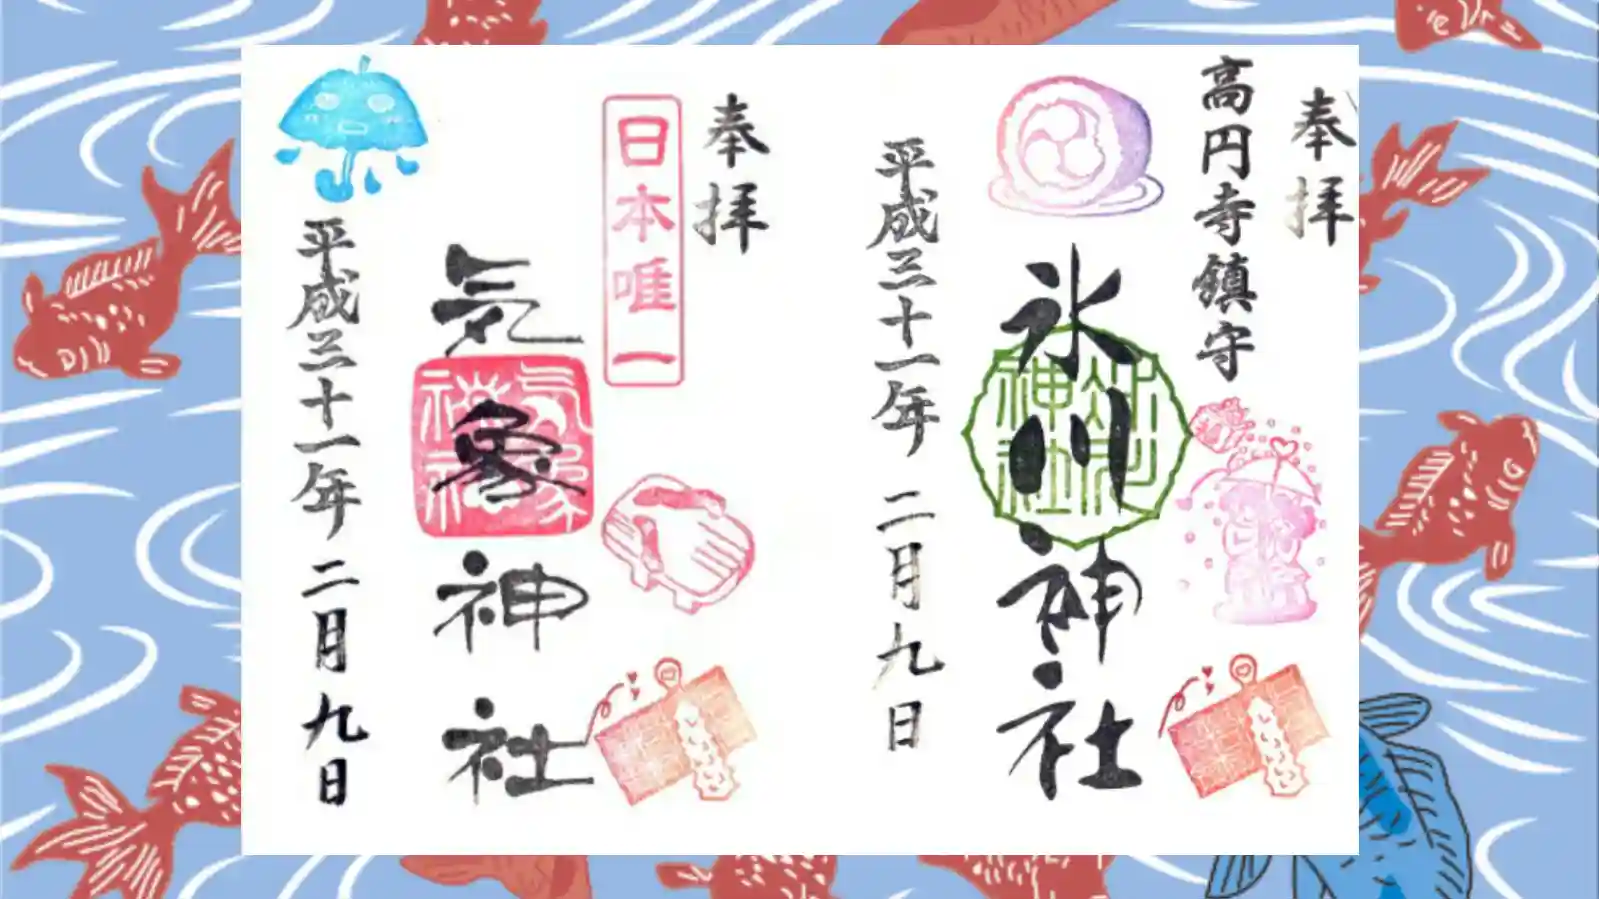 奉拝
高円寺鎮守
氷川神社
平成三十一年 二月九日
奉拝
日本唯一
気象神社
平成三十一年 二月九日